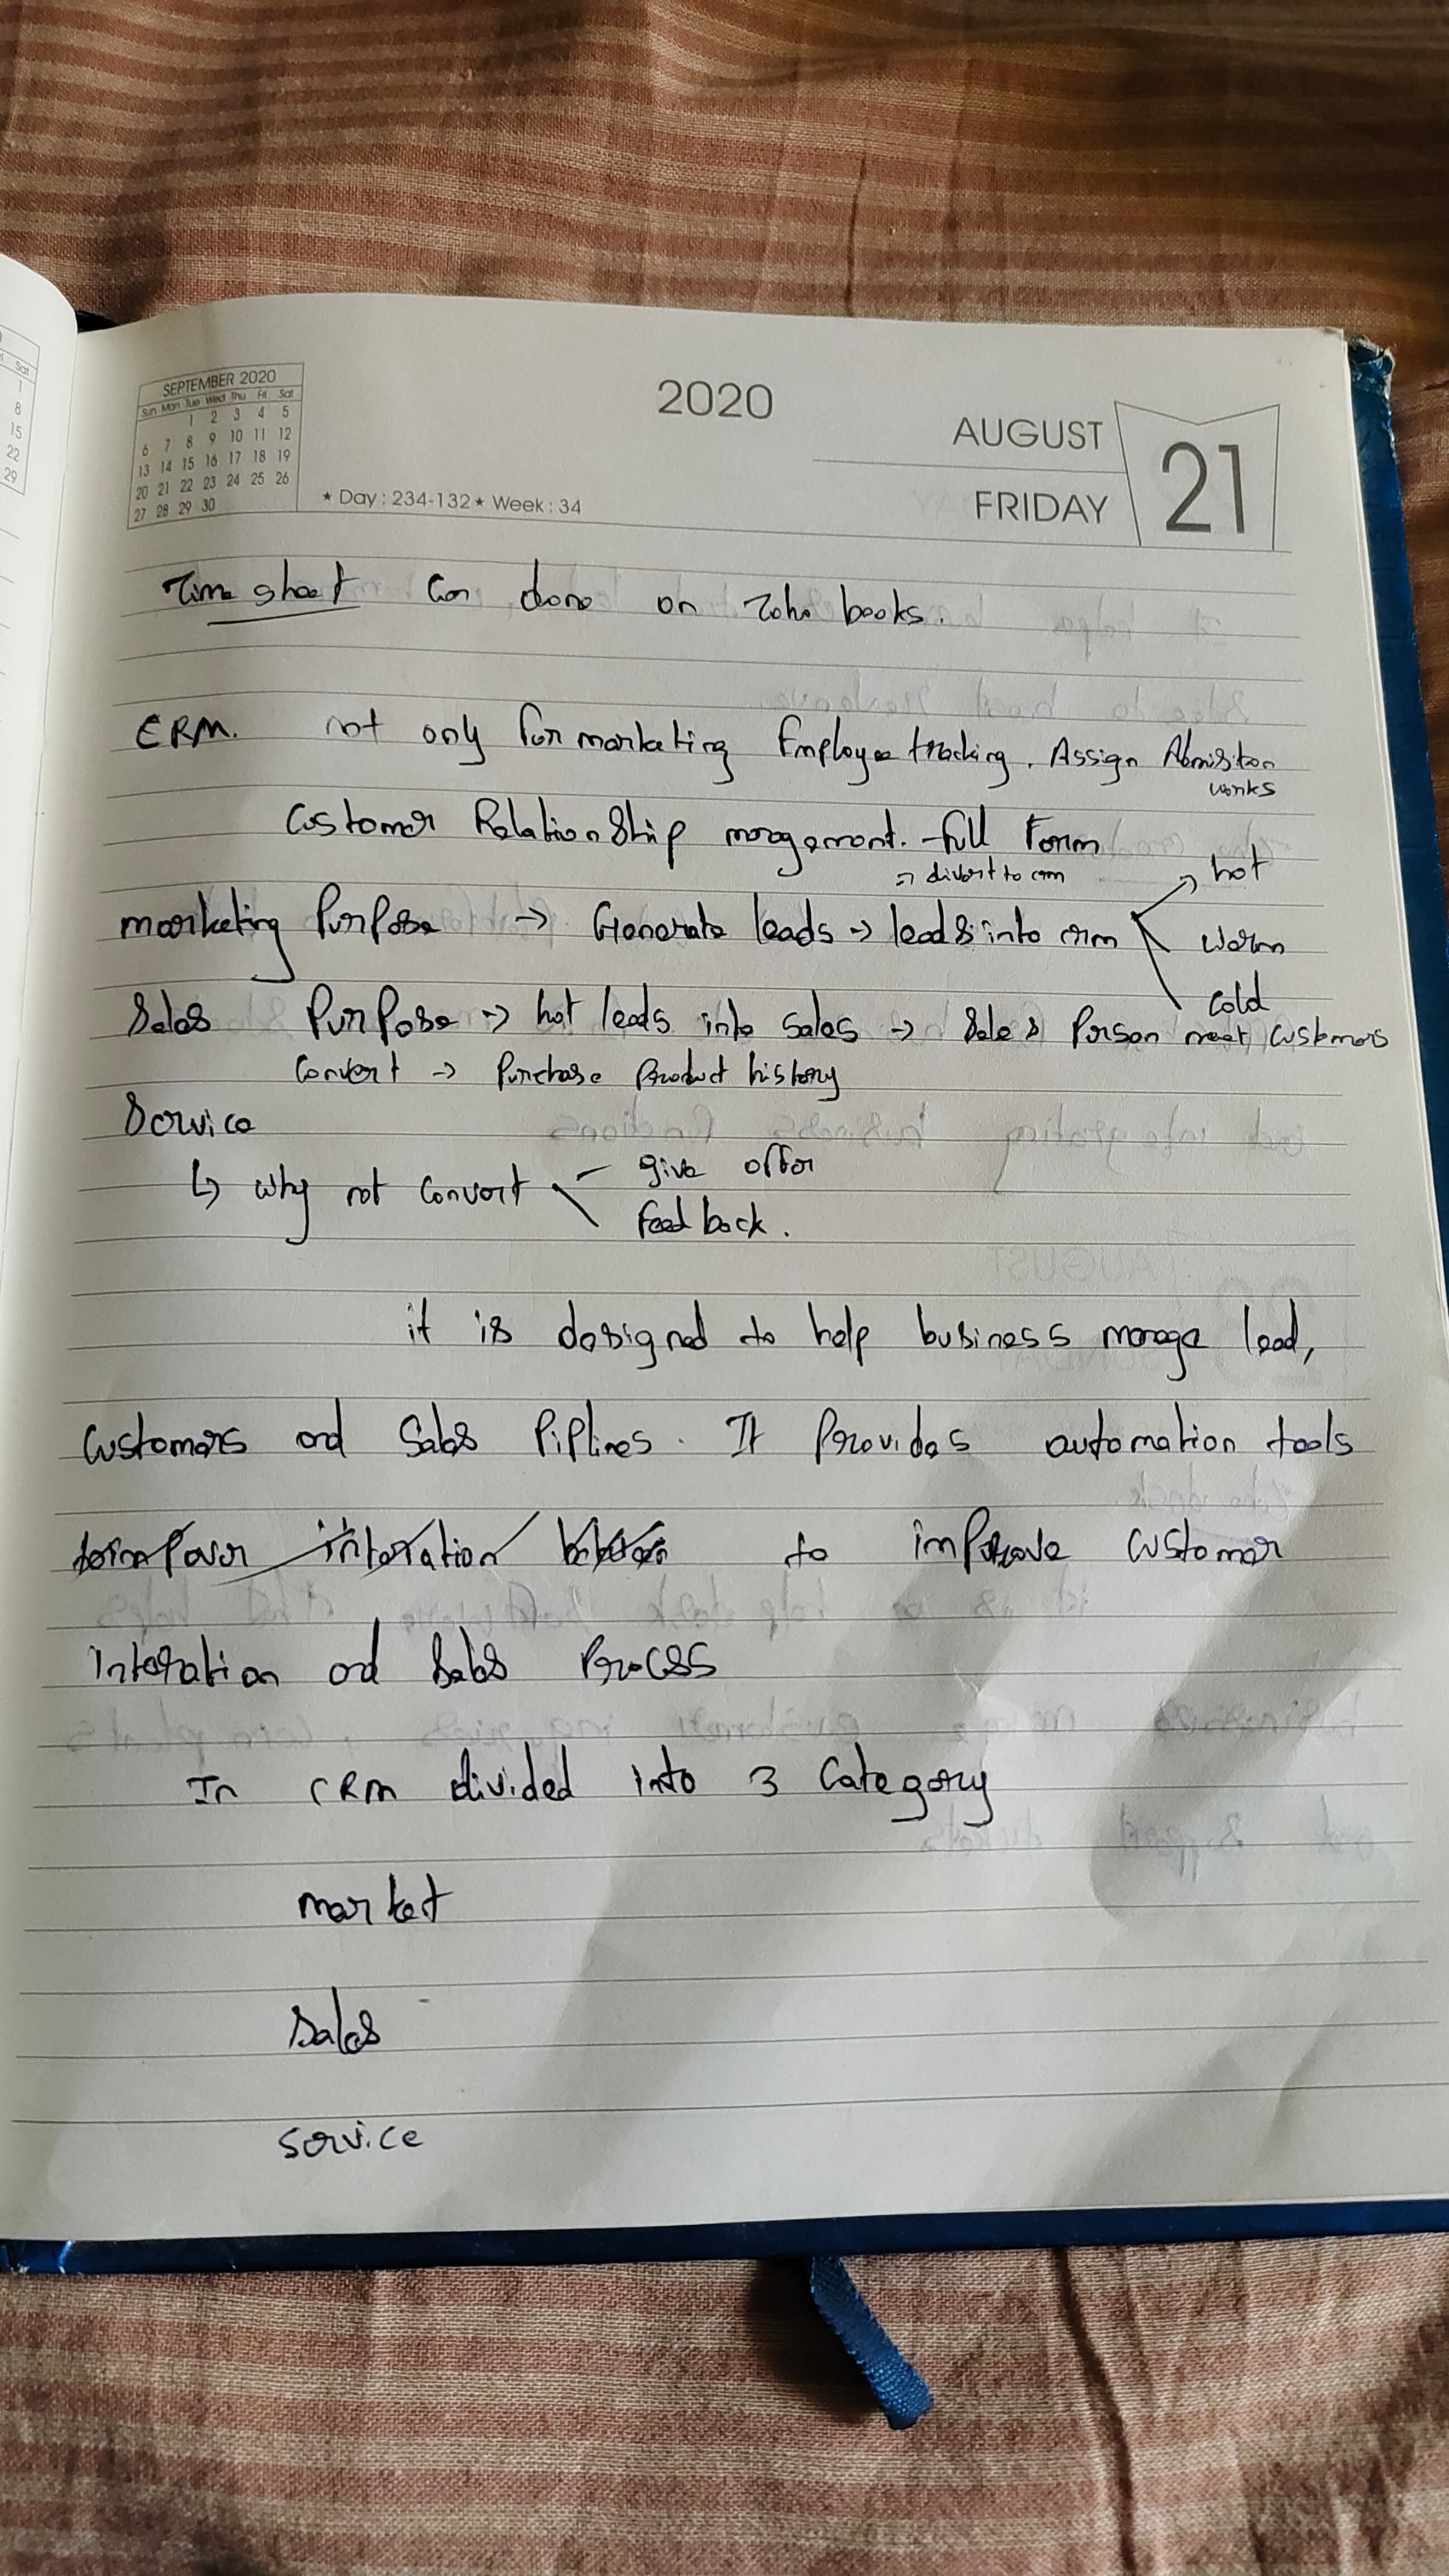 SEPTEMBER 2020
Sun Mon Tue Wed Thu Fri Sat
1 2 3 4 5
6 7 8 9 10 11 12
13 14 15 16 17 18 19
20 21 22 23 24 25 26
27 28 29 30
★ Day : 234-132 ★ Week : 34
2020
AUGUST
FRIDAY
21
Time sheet can done on Zoho books.
CRM. not only for marketing Employee tracking. Assign
works
Customer Relationship management. - full form
→ divert to crm
hot
marketing Purpose → Generate leads → leads into crm
warm
cold
Sales Purpose → hot leads into sales → Sales Person meet customers
Convert → Purchase Product history
Service
↳ why not convert
give offer
feedback.
it is designed to help business manage lead,
customers and Sales Piplines. It Provides automation tools
to improve customer
Interation and Sales Process
In CRM divided into 3 Category
market
Sales
service